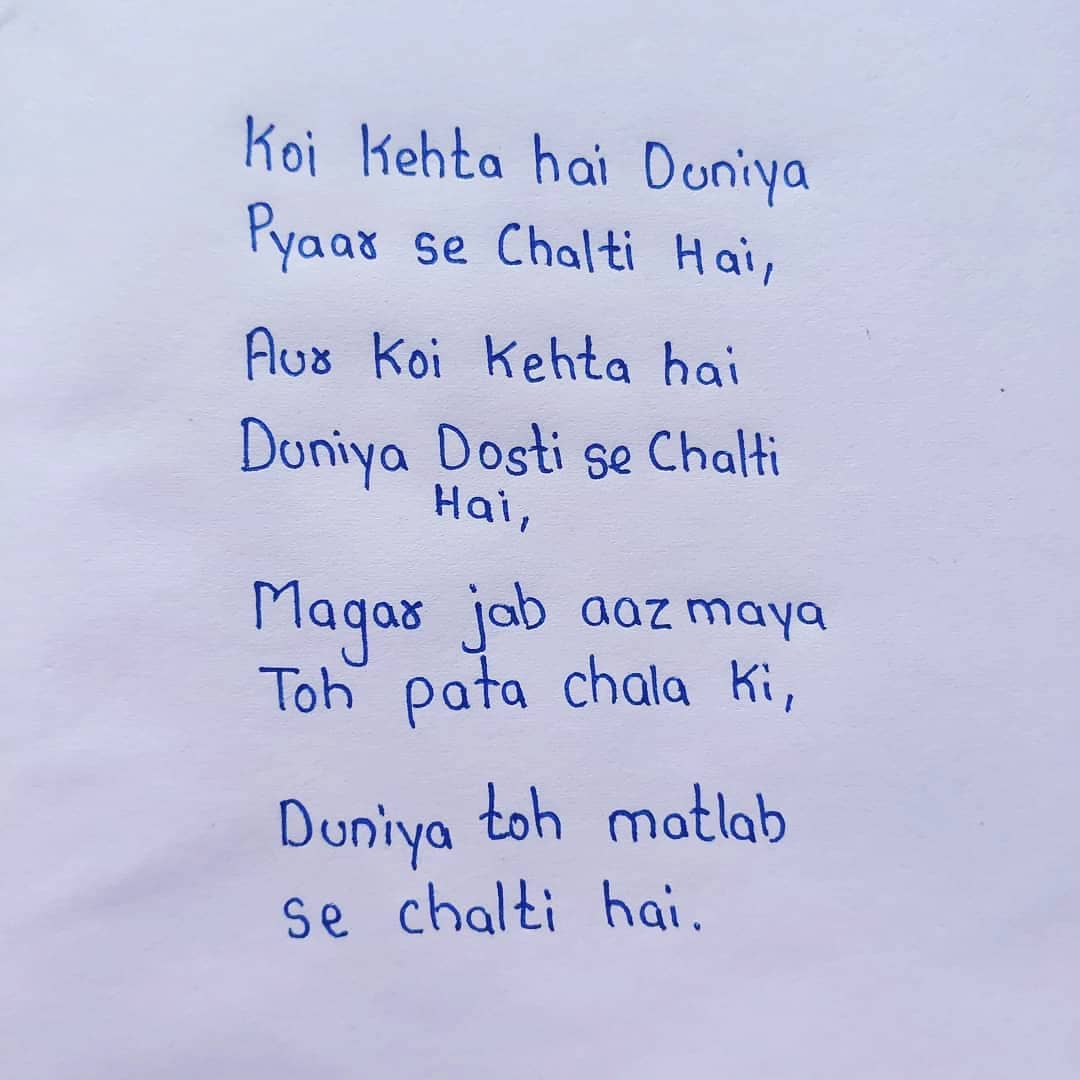 Koi Kehta hai Duniya
Pyaar se Chalti Hai,
Aur Koi Kehta hai
Duniya Dosti se Chalti
Hai,
Magar jab aazmaya
Toh pata chala Ki,
Duniya toh matlab
se chalti hai.